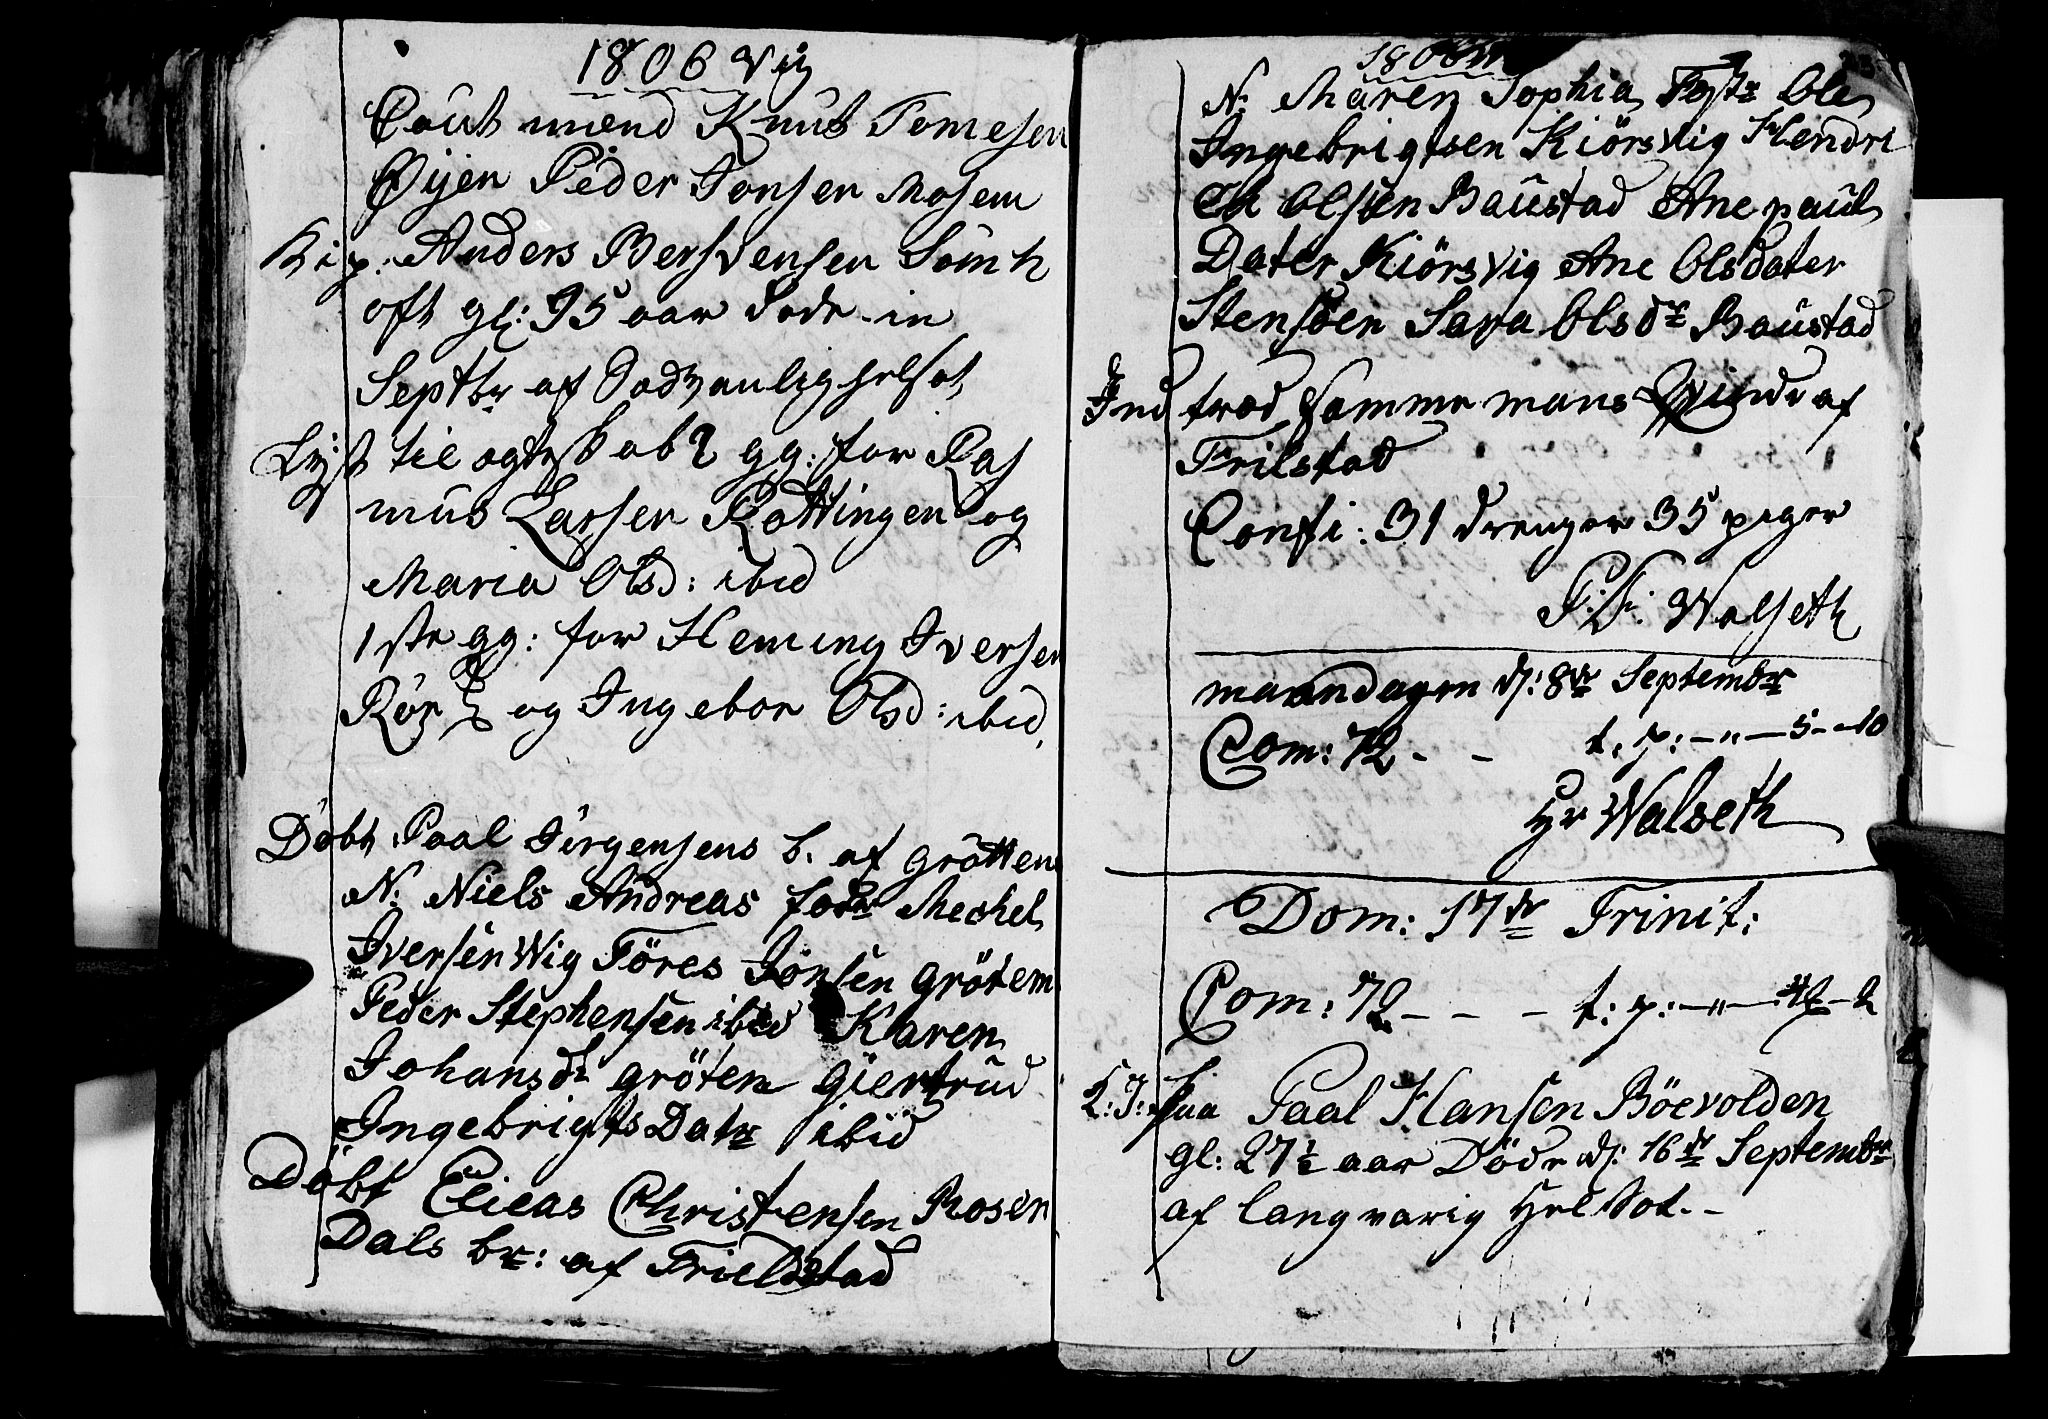 1806
Caut mænd Knut Tomesen
Øijen Peder Jonsen Mosem
Kip: Anders Bersvensen
oft gl: 75 aar døde in
Septbr af Sædvanlig helsot
Lyst til ægteskab 2 gg: for Ras
mus Larsen Røttingen og
Maria Olsd: ibid
1ste gg: for Heming Iversen
og Ingebor Olsd: ibid
Döbt Paal Jörgensens b. af Gröttem
N: Niels Andreas fadr Mechel
Iversen Wig Töres Jonsen Grötem
Peder Stephensen ibid Karen
Johansdr Gröten Giertrud
Ingebrigts Datr ibid
Döbt Elieas Christensen Rosen
Dals br: af Frielstad
1806
N: Maren Sophia Festr Ole
Ingebrigtsen Kiörsvig Hendri
ch Olsen Baustad Ane pauls
Dater Kiörsvig Ane Olsdater
Stensöen Sara Olsdr Baustad
Ind træd Samme mans Qvinde af
Frilstad
Confi: 31 drenger 35 piger
Walseth
maandagen d: 8de Septembr
Com: 72 - - t: p: - " - 5 - 10
Hr Walseth
Dom: 17de Trinit:
Com: 72 - - - t: p: - " - - 2
L: J: paa Paal Hansen Böevolden
gl: 27½ aar Döde d: 16de Septembr
af langvarig Helsot. -